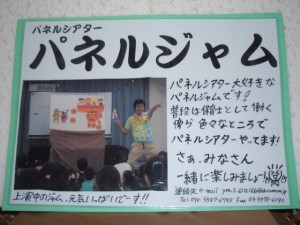 パネルシアター
パネルジャム
パネルシアター大好きな
パネルジャムです!
普段は保育士として働く
傍ら 色々なところで
パネルシアターやってます!
さぁ、みなさん
一緒に楽しみましょ
連絡先 e-mail
Tel
上演中のジャム。元気いっぱいでーす!!